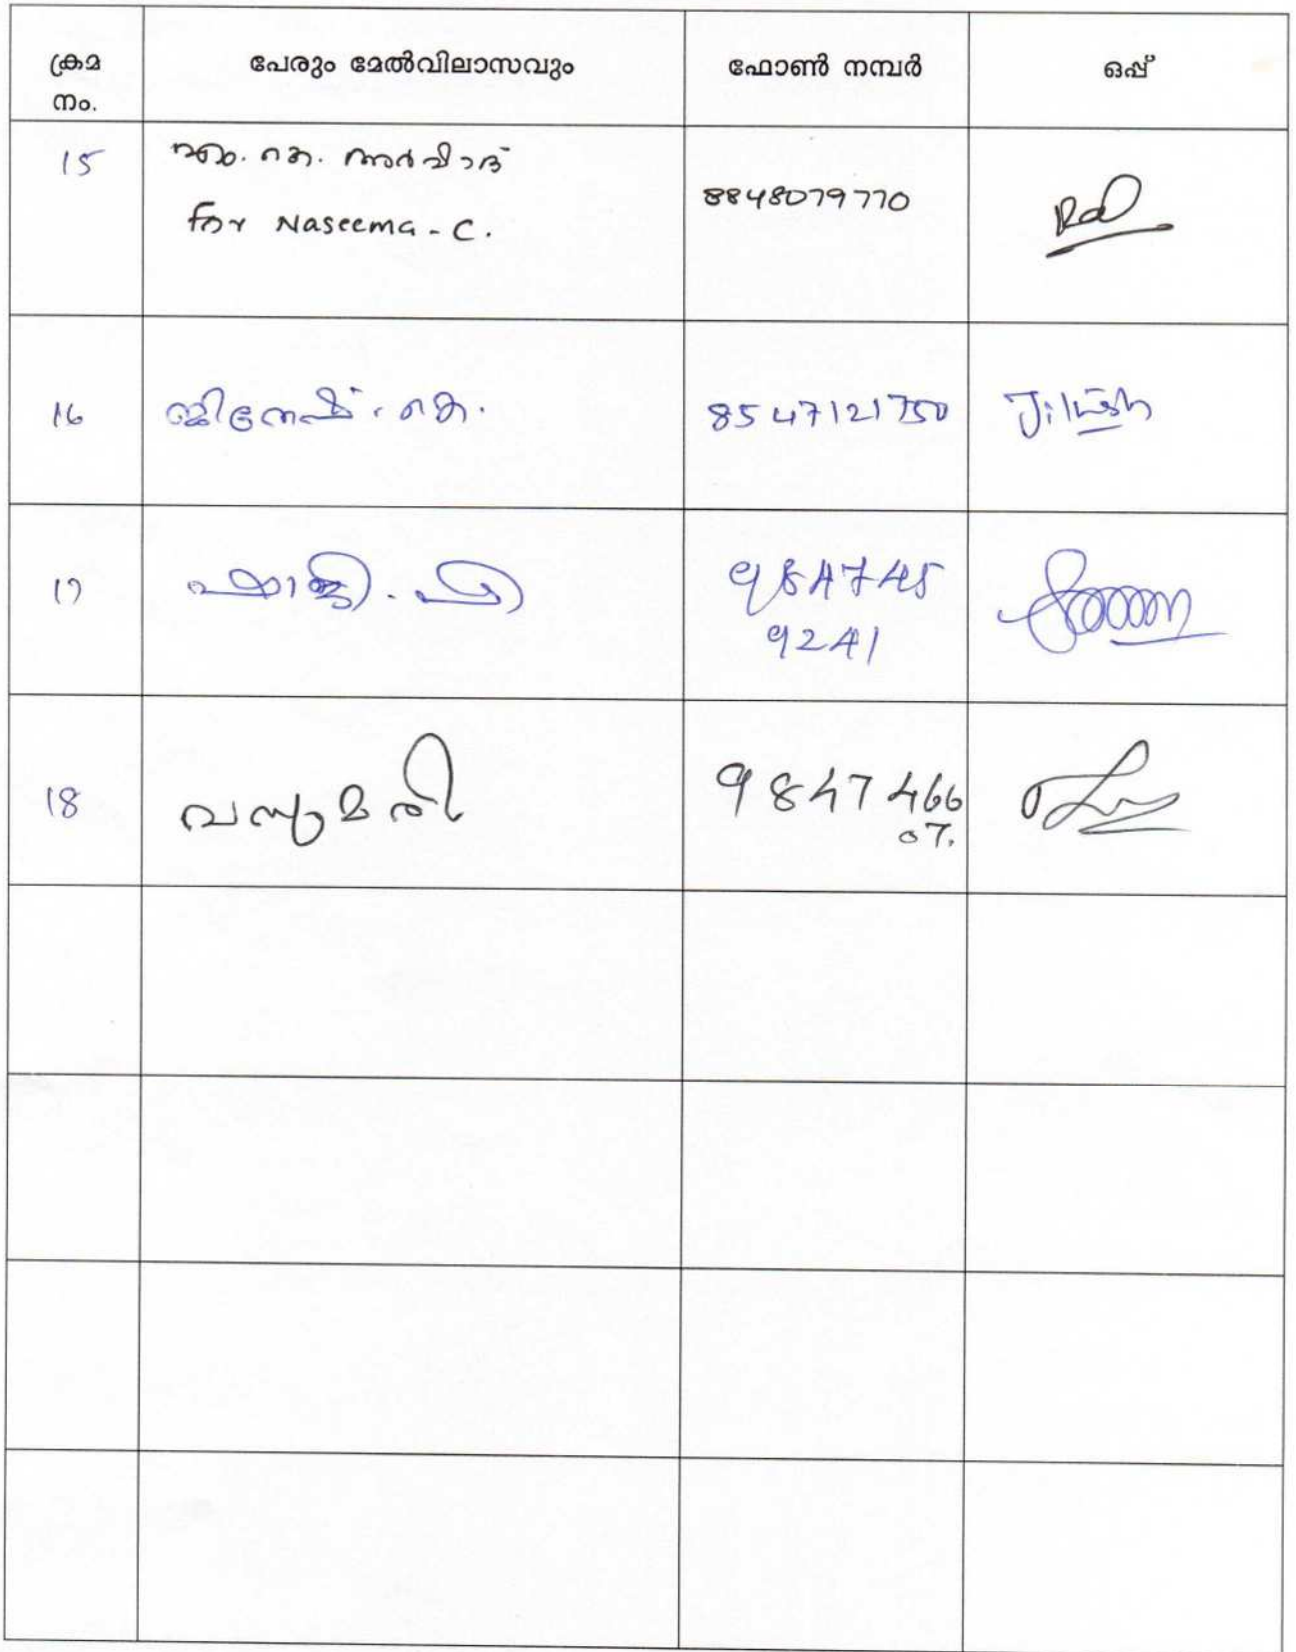 ക്രമ
നം.
പേരും മേൽവിലാസവും
ഫോൺ നമ്പർ
ഒപ്പ്
15
എം. കെ.
for Naseema - C.
8848079770
16
ജിനേഷ്. കെ.
8547121750
17
ഷാജി. പി
984745
9241
18
വസുമതി
9847466
07.